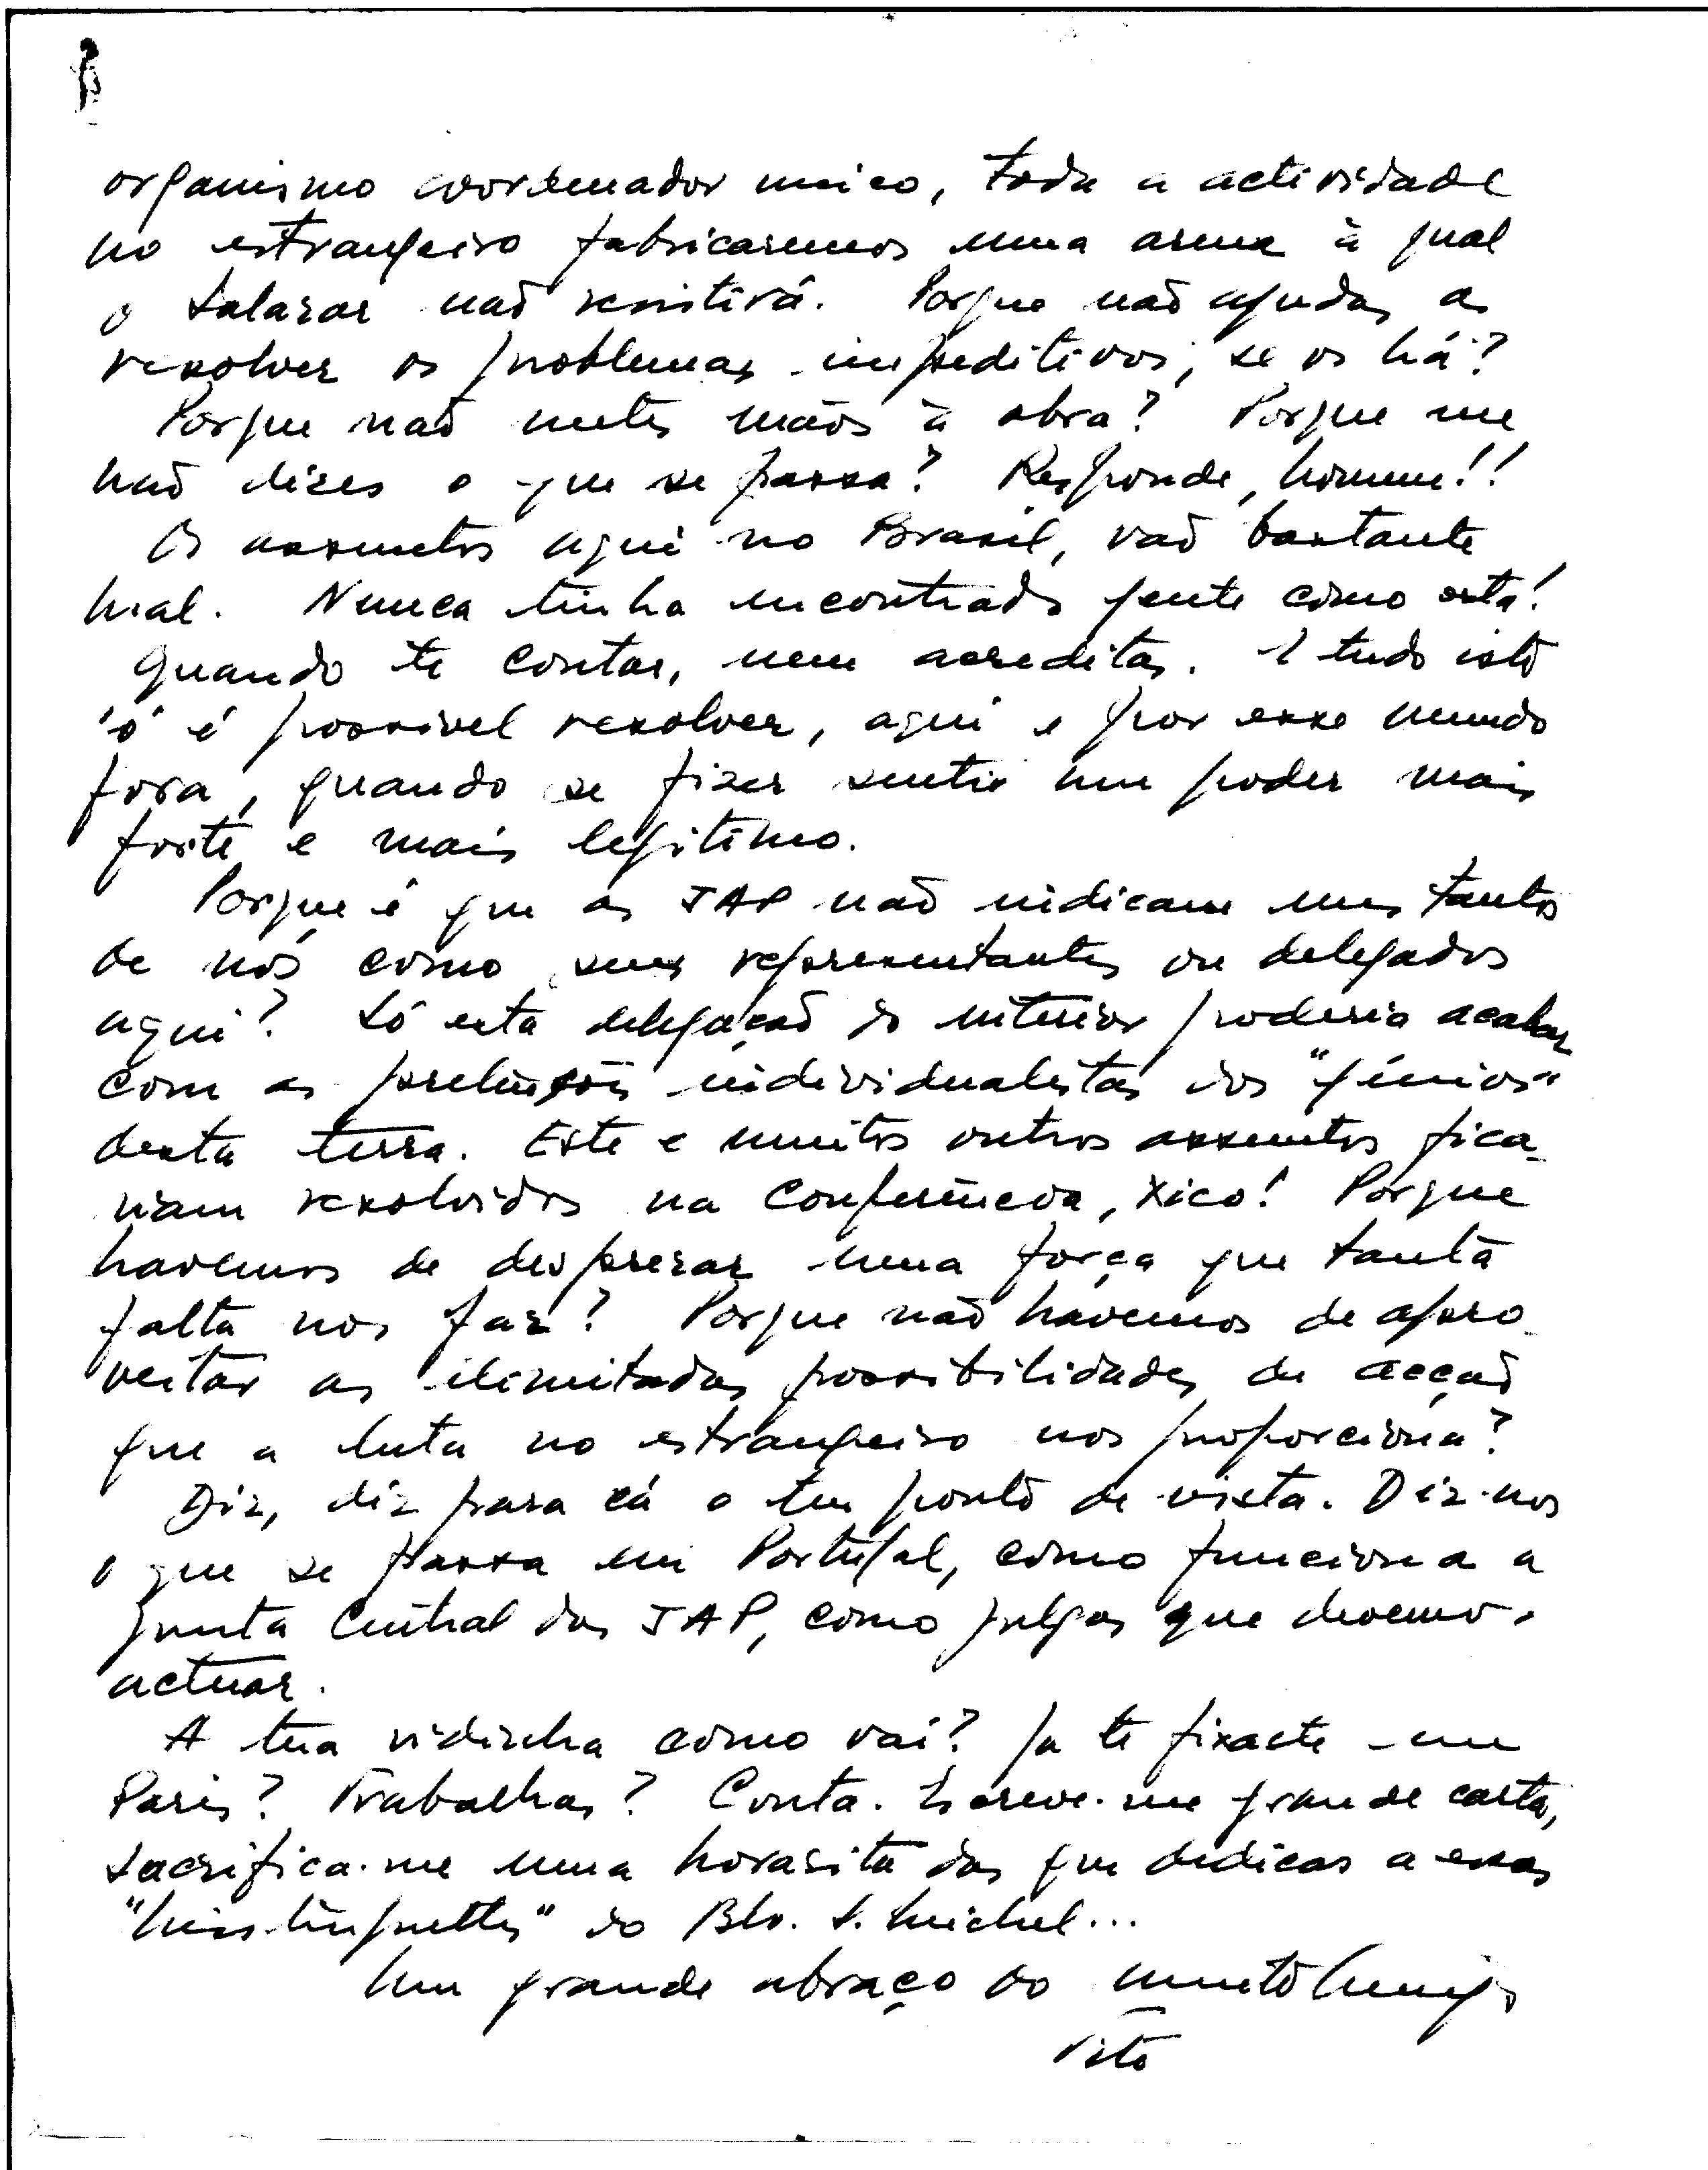 organismo coordenador unico, toda a actividade
no estrangeiro fabricaremos uma arma à qual
o Salazar não resistirá. Porque não ajudas a
resolver os problemas impeditivos, se os há?
Porque não metes mãos à obra? Porque me
não dizes o que se passa? Responde, homem!!
Os assuntos aqui no Brasil, vão bastante
mal. Nunca tinha encontrado gente como esta!
Quando te contar, nem acreditas. E tudo isto
só é possivel resolver, aqui e por esse mundo
fora, quando se fizer sentir um poder mais
forte e mais legitimo.
Porque é que as JAP não indicam uns tantos
de nós como seus representantes ou delegados
aqui? Só esta delegação do interior poderia acabar
com as pretensões individualistas dos "génios"
desta terra. Este e muitos outros assuntos fica-
riam resolvidos na Conferência, Xico! Porque
havemos de desprezar uma força que tanta
falta nos faz? Porque não havemos de apro-
veitar as ilimitadas possibilidades de acção
que a luta no estrangeiro nos proporciona?
Diz, diz para cá o teu ponto de vista. Diz-nos
o que se passa em Portugal, como funciona a
Junta Central das JAP, como julgas que devemos
actuar.
A tua vidinha como vai? Ja te fixaste em
Paris? Trabalhas? Conta. Escreve-me grande carta,
sacrifica-me uma horasita das que dedicas a essas
do Blv. S. Michel...
Um grande abraço do muito Amigo